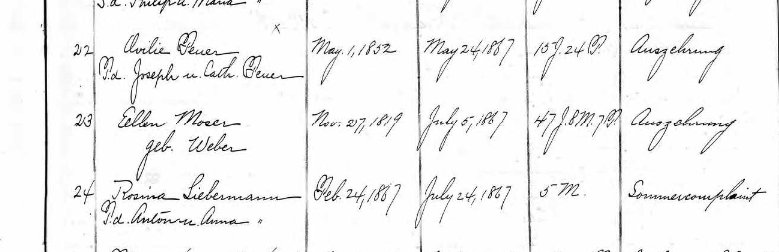 T.d. Philip u. Maria "
22 Ovilie Feuer May. 1, 1852 May 24, 1867 15 J. 24 T. Auszehrung
T.d. Joseph u. Cath. Feuer
23 Ellen Moser Nov. 27, 1819 July 5, 1867 47 J. 8 M. 7 T. Auszehrung
geb. Weber
24 Rosina Liebermann Feb. 24, 1867 July 24, 1867 5 M. Sommercomplaint
T.d. Anton u. Anna "